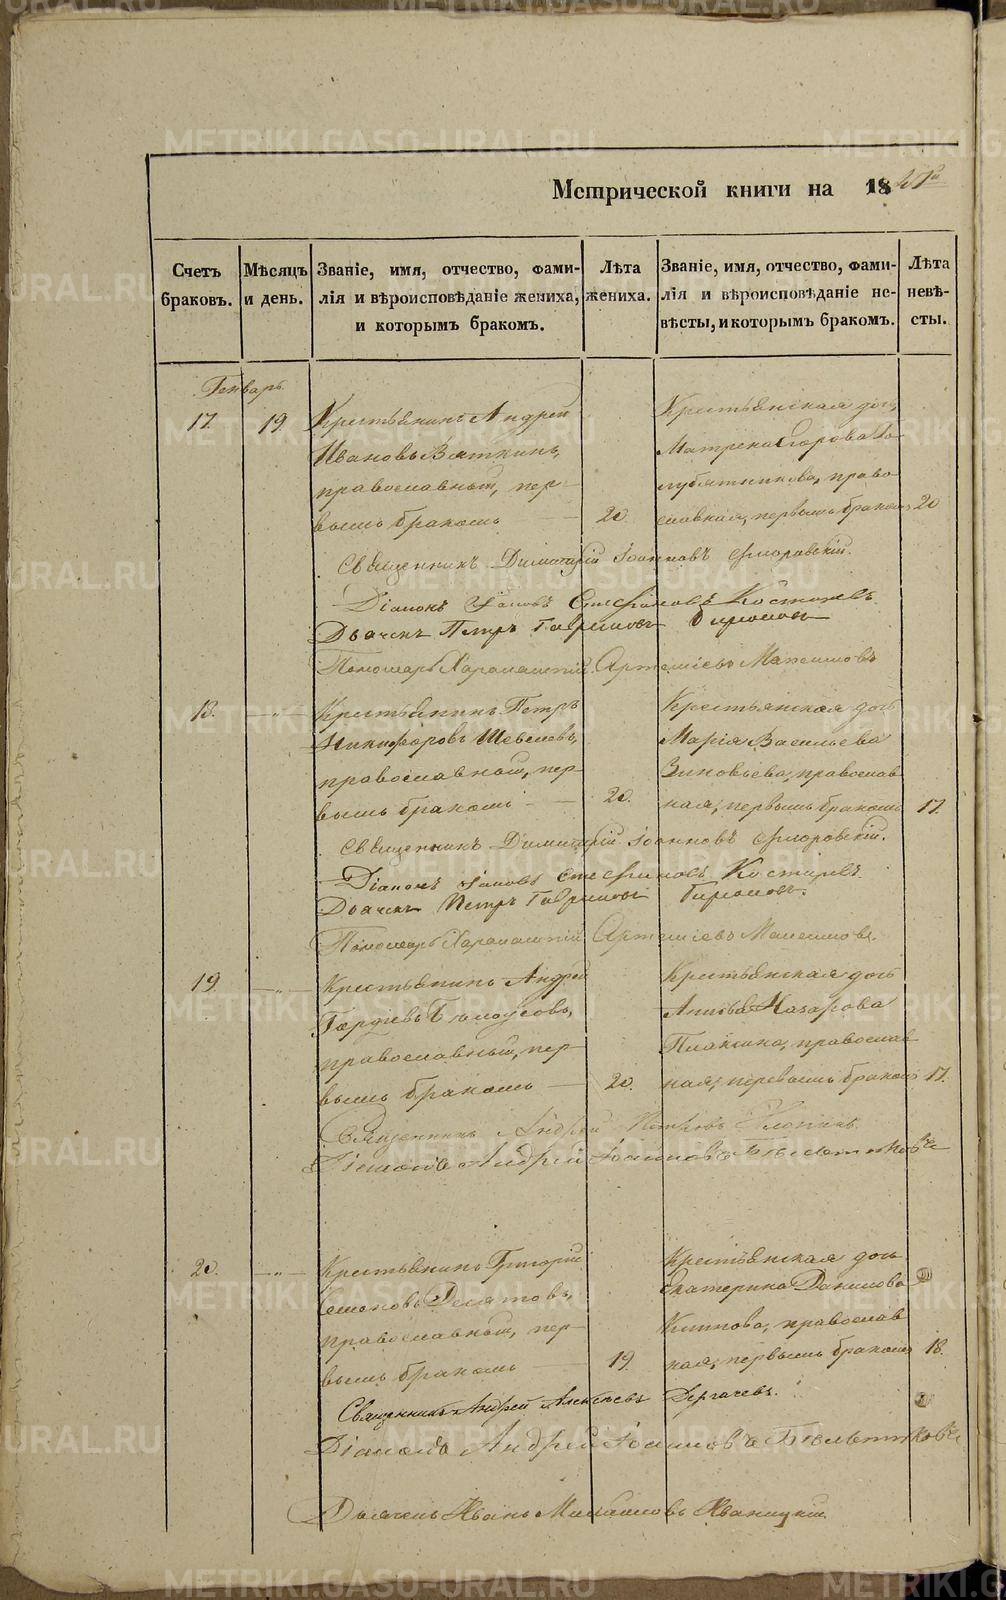 METRIKI.GASO-URAL.RU
Метрической книги на 18
Счетъ браковъ.
Мѣсяцъ и день.
Званіе, имя, отчество, фами-
лія и вѣроисповѣданіе жениха,
и которымъ бракомъ.
Лѣта
жениха.
Званіе, имя, отчество, фами-
лія и вѣроисповѣданіе не-
вѣсты, и которымъ бракомъ.
Лѣта
невѣ-
сты.
Генварь.
17. 19. Крестьянинъ Андрей
Ивановъ Вяткинъ,
православный, пер-
вымъ бракомъ 20
Крестьянская дочь
Матрена Егорова Го-
лубятникова, право
славная, первымъ бракомъ 20
Священникъ Димитрій Іоанновъ
Діаконъ Іаковъ Стефановъ Костаревъ
Дьячекъ Петръ Гавриловъ
Пономарь Артеміевъ Максимовъ
18. — „ — Крестьянинъ Петръ
Никифоровъ Шевелевъ,
православный, пер-
вымъ бракомъ 20.
Крестьянская дочь
Марія Васильева
Зиновьева, православ
ная, первымъ бракомъ 17.
Священникъ Димитрій Іоанновъ
Діаконъ Іаковъ Стефановъ Костаревъ
Дьячекъ Петръ Гавриловъ
Пономарь Артеміевъ Максимовъ.
19 — „ — Крестьянинъ Андрей
Гордіевъ Бѣлоусовъ,
православный, пер-
вымъ бракомъ 20.
Крестьянская дочь
Назарова
православ
ная, первымъ бракомъ 17.
Священникъ Андрей Петровъ
Діаконъ Андрей Іоанновъ
20. — „ — Крестьянинъ Григорій
Семеновъ Десятовъ,
православный, пер-
вымъ бракомъ 19.
Крестьянская дочь
Екатерина Данилова
православ
ная, первымъ бракомъ 18.
Священникъ Андрей Алексѣевъ Дергачевъ.
Діаконъ Андрей Іоанновъ
Дьячекъ Иванъ Михайловъ Иваницкій.